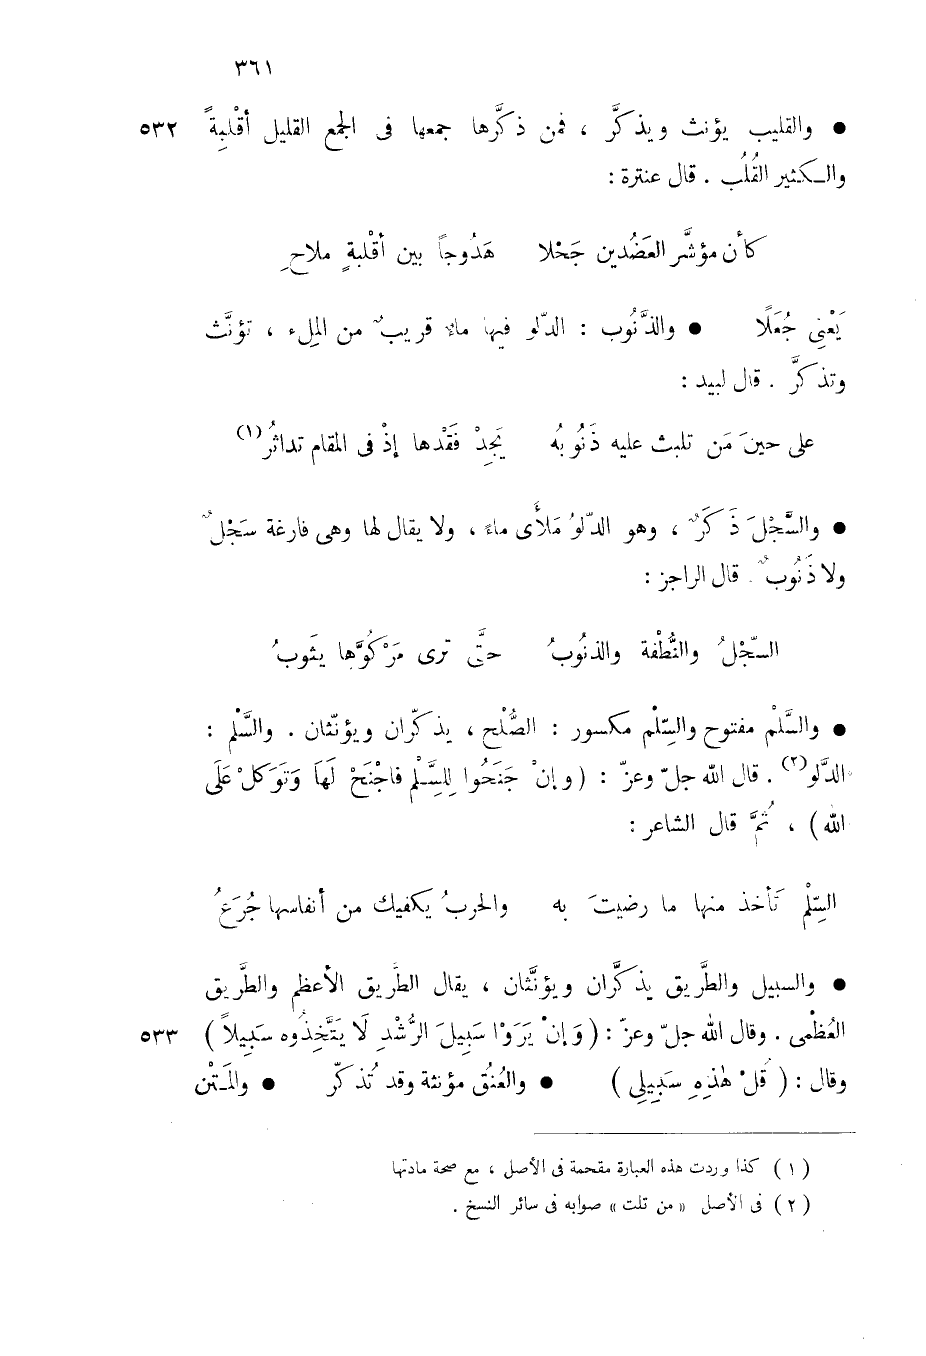 ٣٦١
● والقليب يؤنث ويذكَّر ، فمن ذكَّرها جمعها فى الجمع القليل أقْلِبةً ٥٣٢
والكثير القُلُب . قال عنترة :
كأن مؤشَّر العَضُدين جَحْلا هَدُوجاً بين أقْلبةٍ ملاحِ
يَعْنِى جُعَلًا ● والذَّنُوب : الدّلو فيها ماءٌ قريبٌ من المِلء ، تؤنَّث
وتذكرَّ . قال لبيد :
على حينَ مَن تلبث عليه ذَنُوبُه يَجِدْ فَقْدها إذْ فى المقام تداثُر(١)
● والسَّجْلَ ذَكَرٌ ، وهو الدّلوُ مَلأَى ماءً ، ولا يقال لها وهى فارغة سَجْلٌ
ولا ذَنُوبٌ . قال الراجز :
السّجْلُ والنُّطْفة والذنُوبُ حتَّى ترى مَرْكُوَّها يثَوبُ
● والسَّلْم مفتوح والسِّلْم مكسور : الصُّلْح ، يذكّران ويؤنّثان . والسَّلْم :
الدَّلو(٢) . قال الله جلّ وعزّ : ( وإنْ جَنَحُوا لِلسَّلْم فاجْنَحْ لَهاَ وَتَوَكلْ عَلَى
الله ) ، ثُمَّ قال الشاعر :
السِّلْم تَأخذ منها ما رضيتَ به والحربُ يكفيك من أنفاسها جُرَعُ
● والسبيل والطَّريق يذكَّران ويؤنَّثان ، يقال الطَّريق الأعظم والطَّريق
العُظْمى . وقال الله جلّ وعزّ : ( وَإنْ يَرَوْا سَبِيلَ الرُّشْدِ لَا يَتَّخِذُوه سَبِيلاً ) ٥٣٣
وقال : ( قُلْ هٰذِهِ سَبِيلِى ) ● والعُنُق مؤنثة وقد تُذكّر ● والمَتْن
( ١ ) كذا وردت هذه العبارة مقحمة فى الأصل ، مع صحة مادتها
( ٢ ) فى الأصل « من تلت » صوابه فى سائر النسخ .